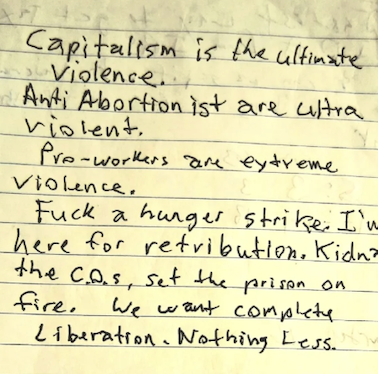 Capitalism is the ultimate
violence.
Anti Abortionist are ultra
violent.
Pro-workers are extreme
violence.
Fuck a hunger strike. I'm
here for retribution. Kidna
the C.O.s, set the prison on
fire. We want complete
Liberation. Nothing Less.